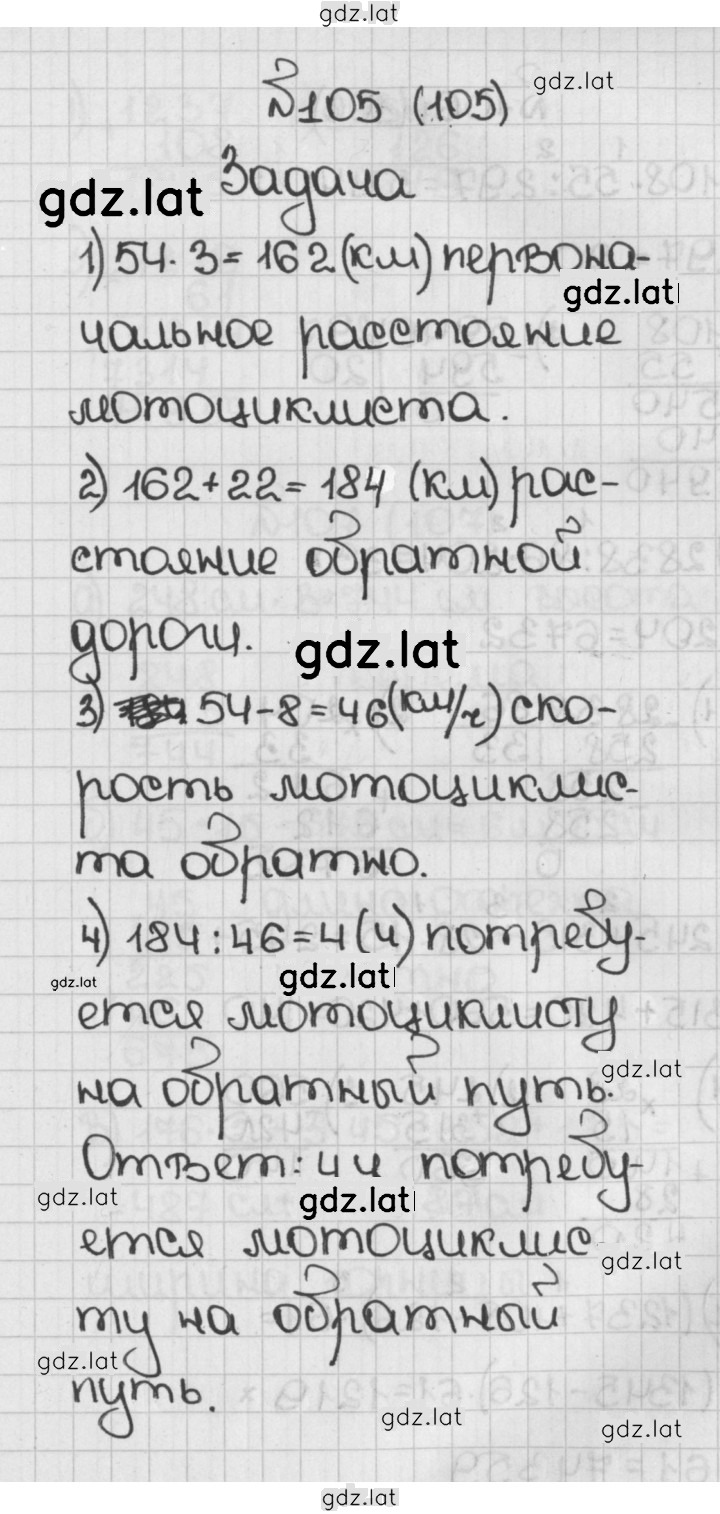 gdz.lat
№105 (105)
gdz.lat
Задача
gdz.lat
1) 54·3=162(км) первона-
gdz.lat
чальное расстояние
мотоциклиста.
2) 162+22=184 (км) рас-
стояние обратной
дороги.
gdz.lat
3) 54-8=46(км/ч) ско-
рость мотоциклис-
та обратно.
4) 184:46=4(ч) потребу-
gdz.lat
gdz.lat
ется мотоциклисту
gdz.lat
на обратный путь.
Ответ: 4 ч потребу-
gdz.lat
gdz.lat
ется мотоциклис
gdz.lat
ту на обратный
gdz.lat
путь.
gdz.lat
gdz.lat
gdz.lat